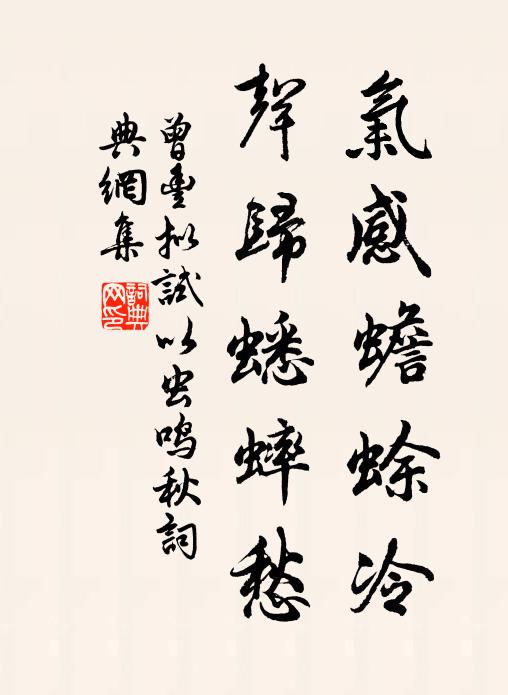 氣感蟾蜍冷
聲歸蟋蟀愁
曾豐拟試以虫鳴秋詞
典網集
詞典
网印